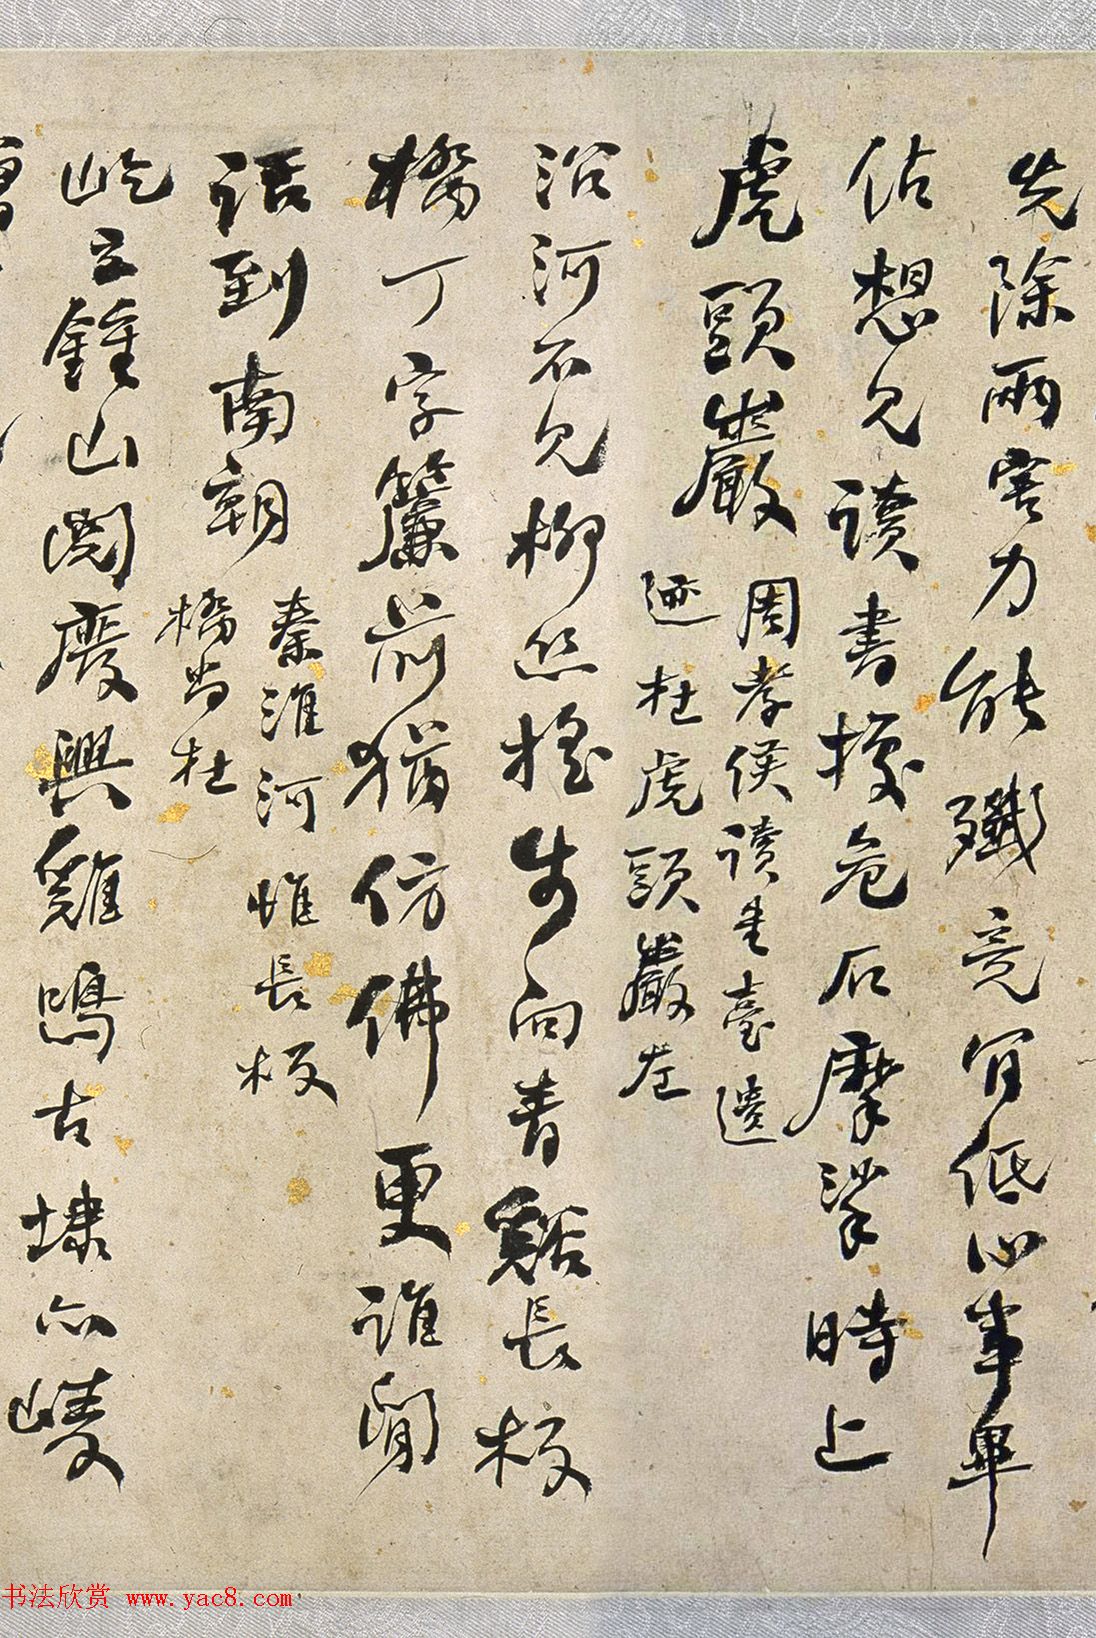 先除兩害力能殲竟眉低心事畢
佔想見讀書擾危石摩挲時上
虎頭巖
周孝侯讀書臺遺
迹在虎頭巖左
沿河不見柳絲搖步向青谿長板
橋丁字簾前猶仿佛更誰閒
話到南朝
秦淮河惟長板
橋尚在
屹立鍾山閱廢興雞鳴古埭亦崚
书法欣赏 www.yac8.com